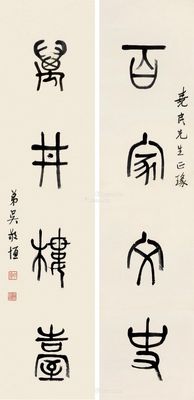 百家文史
堯民先生正篆
萬井樓臺
弟吳敬恆